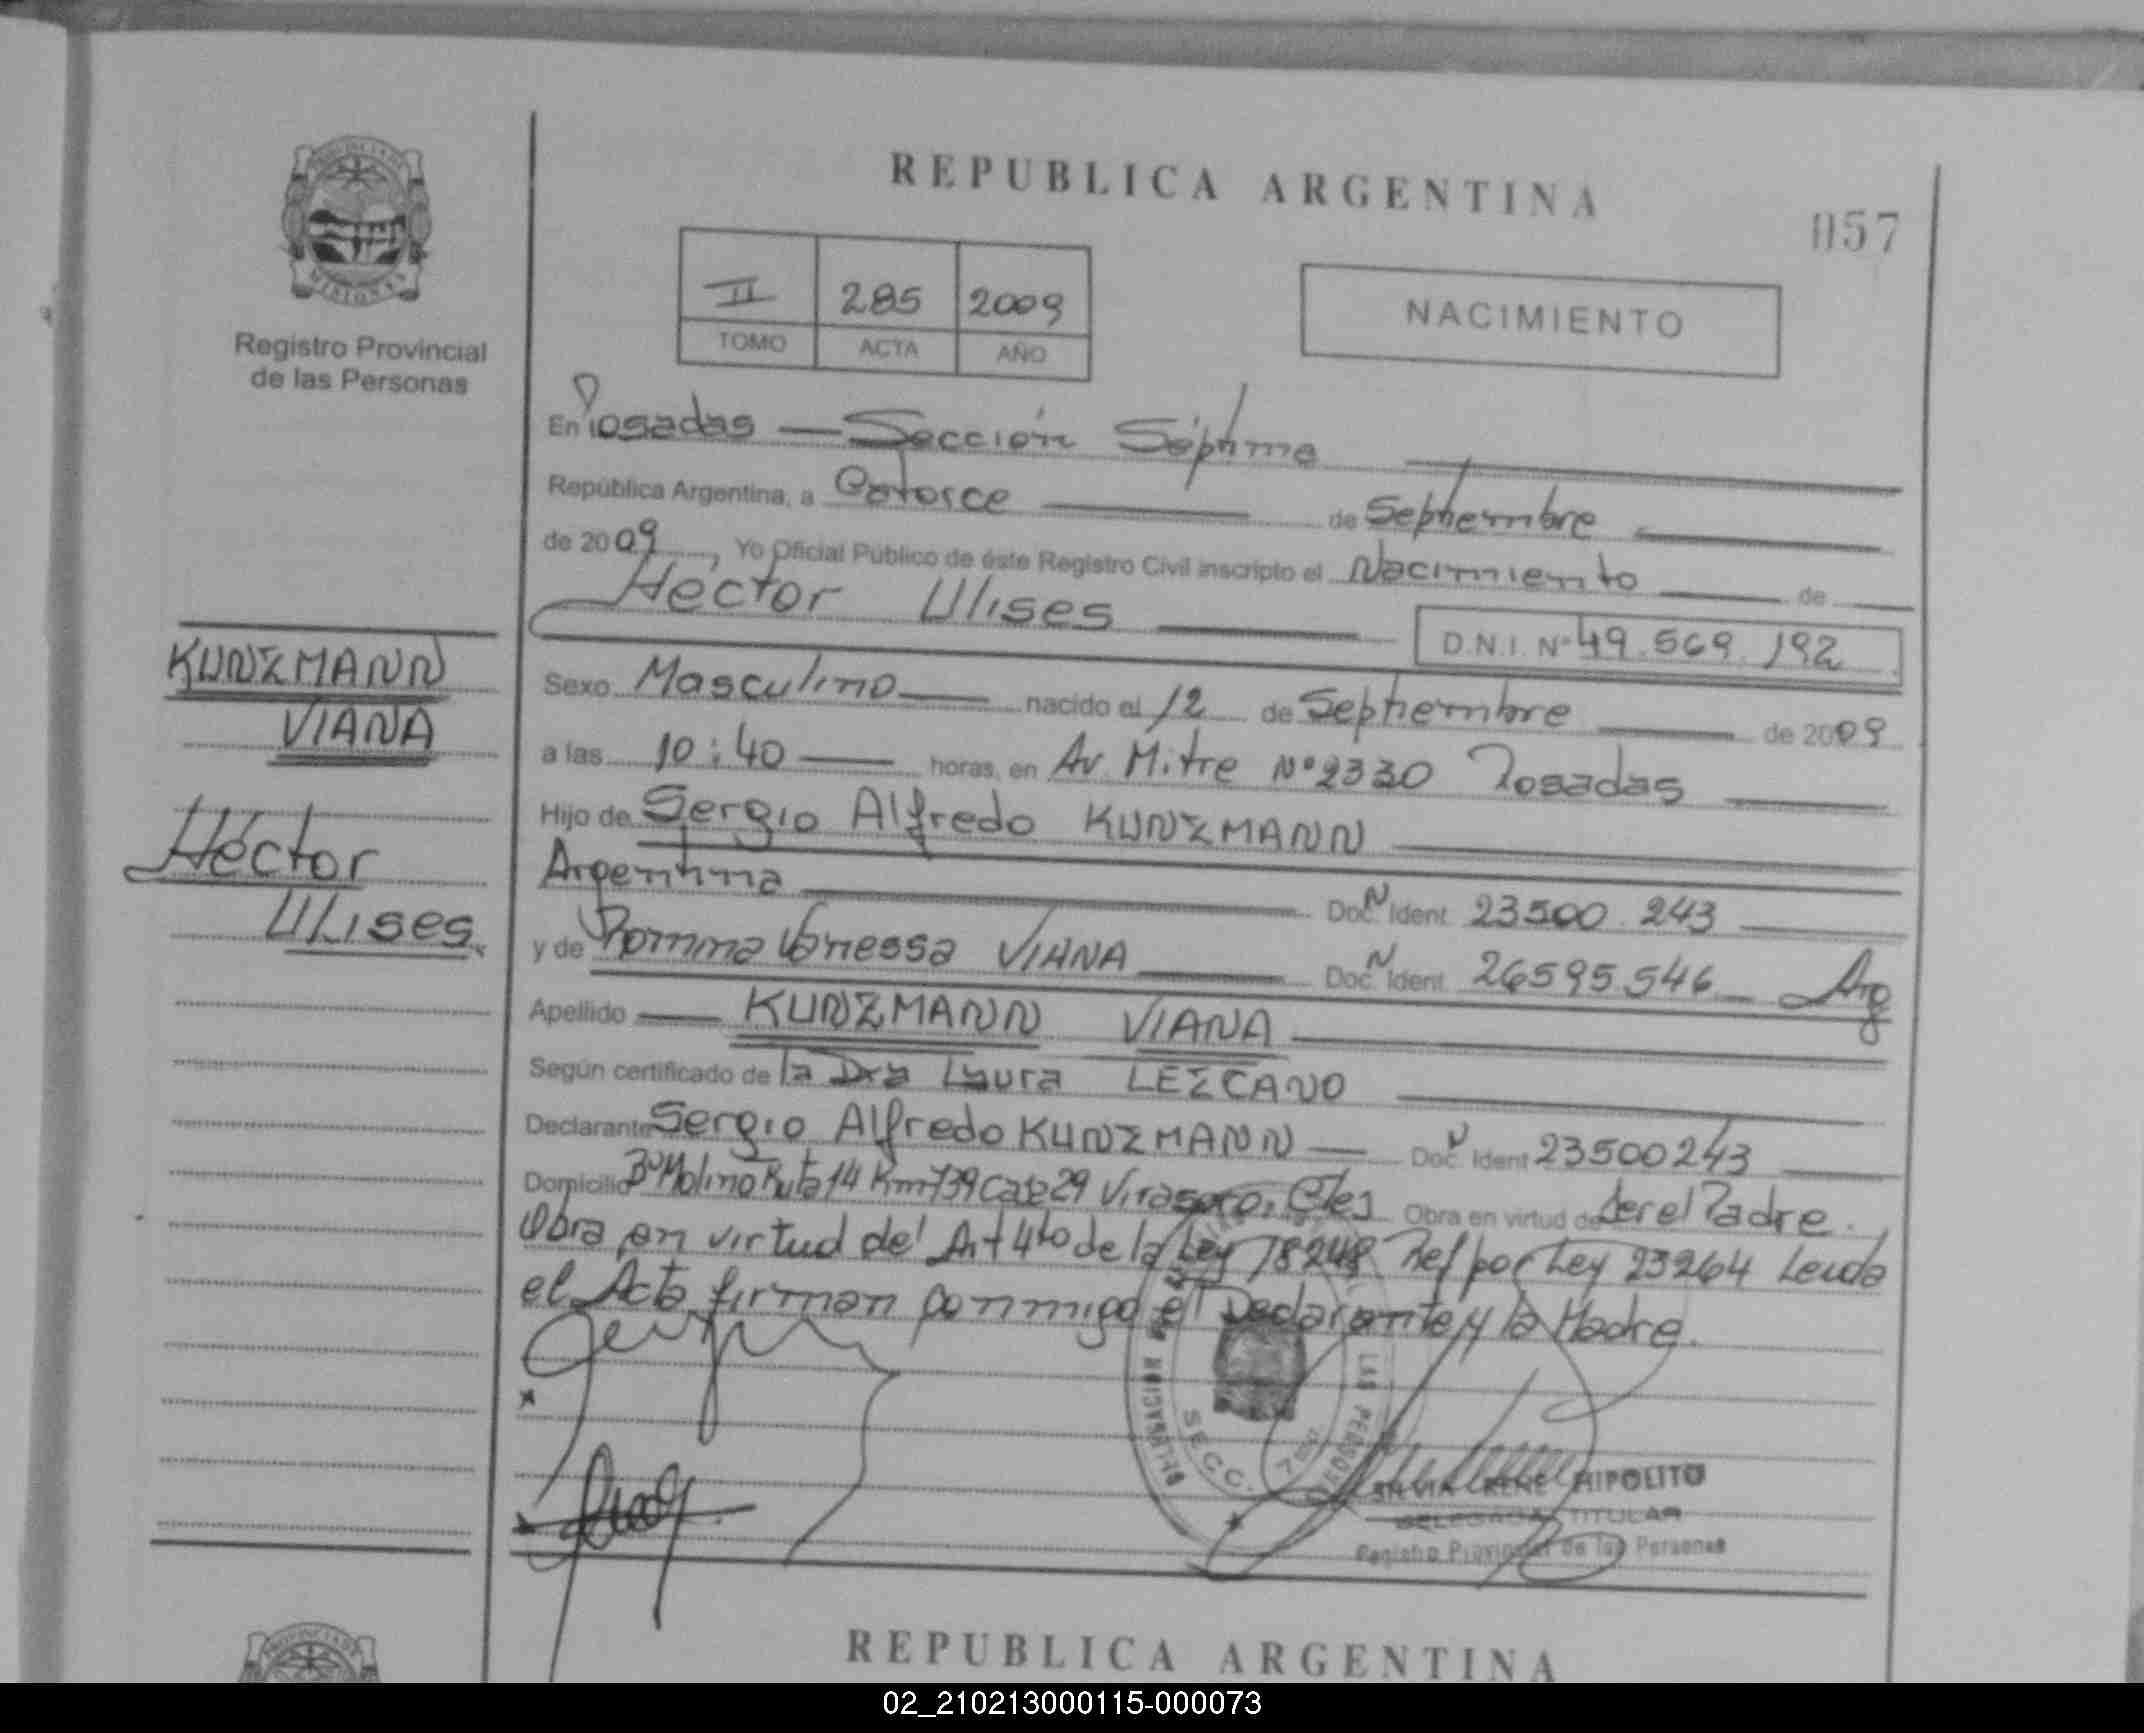 REPUBLICA ARGENTINA
057
PROVINCIA DE
MISIONES
Registro Provincial
de las Personas
II 285 2009
TOMO ACTA AÑO
NACIMIENTO
En Posadas — Sección Séptima
República Argentina, a Catorce de Septiembre
de 2009, Yo Oficial Público de éste Registro Civil inscripto el Nacimiento de
Héctor Ulises D.N.I. Nº 49.569.192
KUNZMANN
VIANA
Héctor
Ulises
Sexo Masculino nacido el 12 de Septiembre de 2009
a las 10:40 horas, en Av. Mitre Nº 2330 Posadas
Hijo de Sergio Alfredo KUNZMANN
Argentina Doc. N Ident. 23500.243
y de Romina Vanessa VIANA Doc. N Ident. 26595.546 Arg
Apellido KUNZMANN VIANA
Según certificado de la Dra Laura LEZCANO
Declarante Sergio Alfredo KUNZMANN Doc. N Ident 23500243
Domicilio Bº Molino Ruta 14 Km 739 Casa 29 Virasoro, Ctes Obra en virtud de ser el Padre.
Obra en virtud del Art 4to de la Ley 18248 Ref por Ley 23264 Leida
el Acta firman conmigo el Declarante y la Madre.
SECC.
SILVIA IRENE HIPOLITO
DELEGADA TITULAR
Registro Provincial de las Personas
REPUBLICA ARGENTINA
02_210213000115-000073